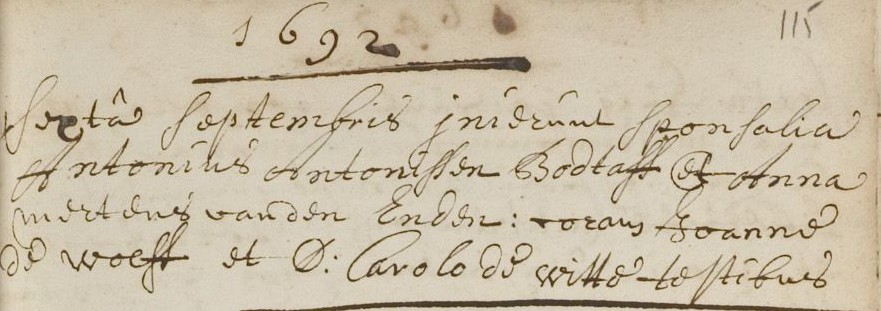 1692
115
Sextâ Septembris jnierunt sponsalia
Antonius Antonissen Bodtaff et Anna
mertens vanden Enden: coram Joanne
de wolff et D: Carolo de witte testibus